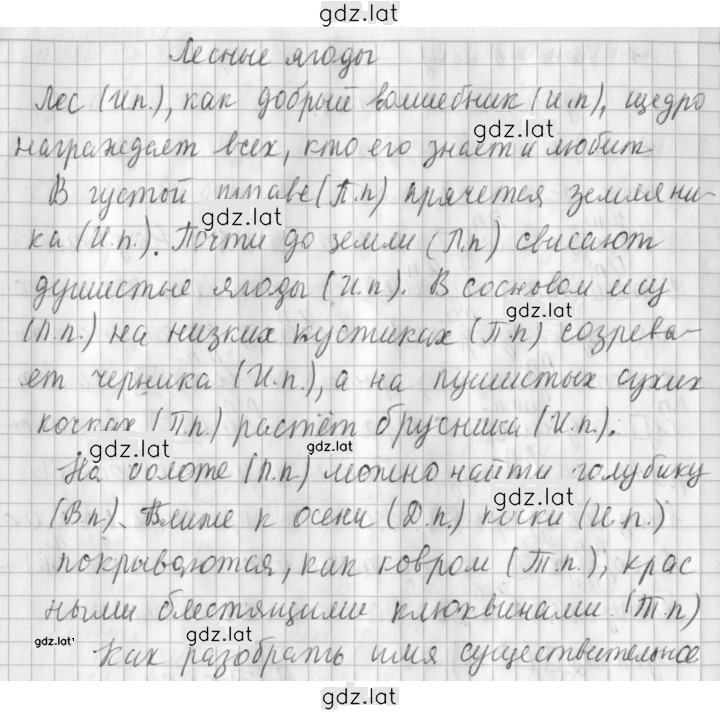 gdz.lat
Лесные ягоды
Лес (И.п.), как добрый волшебник (И.п), щедро
gdz.lat
награждает всех, кто его знает и любит
В густой траве (П.п) прячется земляни-
gdz.lat
ка (И.п.). Почти до земли (П.п) свисают
душистые ягоды (И.п). В сосновом лесу
gdz.lat
(П.п.) на низких кустиках (П.п) созрева-
ет черника (И.п.), а на пушистых сухих
кочках (П.п.) растёт брусника (И.п.).
gdz.lat gdz.lat
На болоте (П.п) можно найти голубику
gdz.lat
(В.п). Ближе к осени (Д.п.) кочки (И.п.)
покрываются, как ковром (Т.п.), крас
ными блестящими клюквинами (Т.п)
gdz.lat gdz.lat
Как разобрать имя существительное
gdz.lat